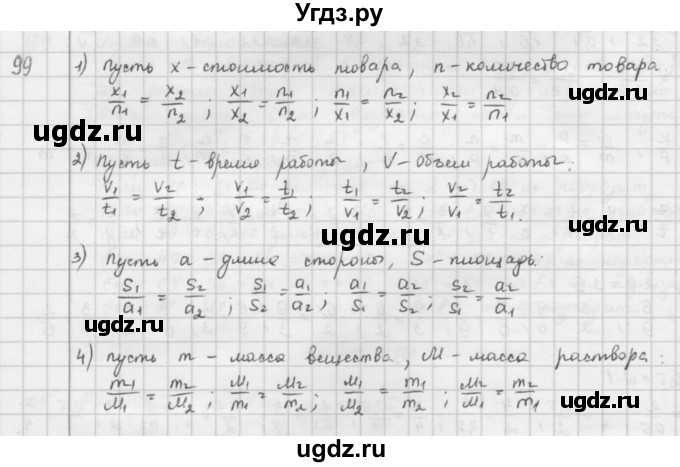 Угдз.ру
99
1) Пусть x - стоимость товара, n - количество товара.
x₁/n₁ = x₂/n₂ ; x₁/x₂ = n₁/n₂ ; n₁/x₁ = n₂/x₂ ; x₂/x₁ = n₂/n₁
ugdz.ru ugdz.ru ugdz.ru
2) Пусть t - время работы, V - объем работы:
v₁/t₁ = v₂/t₂ ; v₁/v₂ = t₁/t₂ ; t₁/v₁ = t₂/v₂ ; v₂/v₁ = t₂/t₁.
ugdz.ru
3) Пусть a - длина стороны, S - площадь:
S₁/a₁ = S₂/a₂ ; S₁/S₂ = a₁/a₂ ; a₁/S₁ = a₂/S₂ ; S₂/S₁ = a₂/a₁
ugdz.ru ugdz.ru
4) Пусть m - масса вещества, M - масса раствора:
m₁/M₁ = m₂/M₂ ; M₁/m₁ = M₂/m₂ ; M₁/M₂ = m₁/m₂ ; M₂/M₁ = m₂/m₁
ugdz.ru ugdz.ru ugdz.ru
ugdz.ru